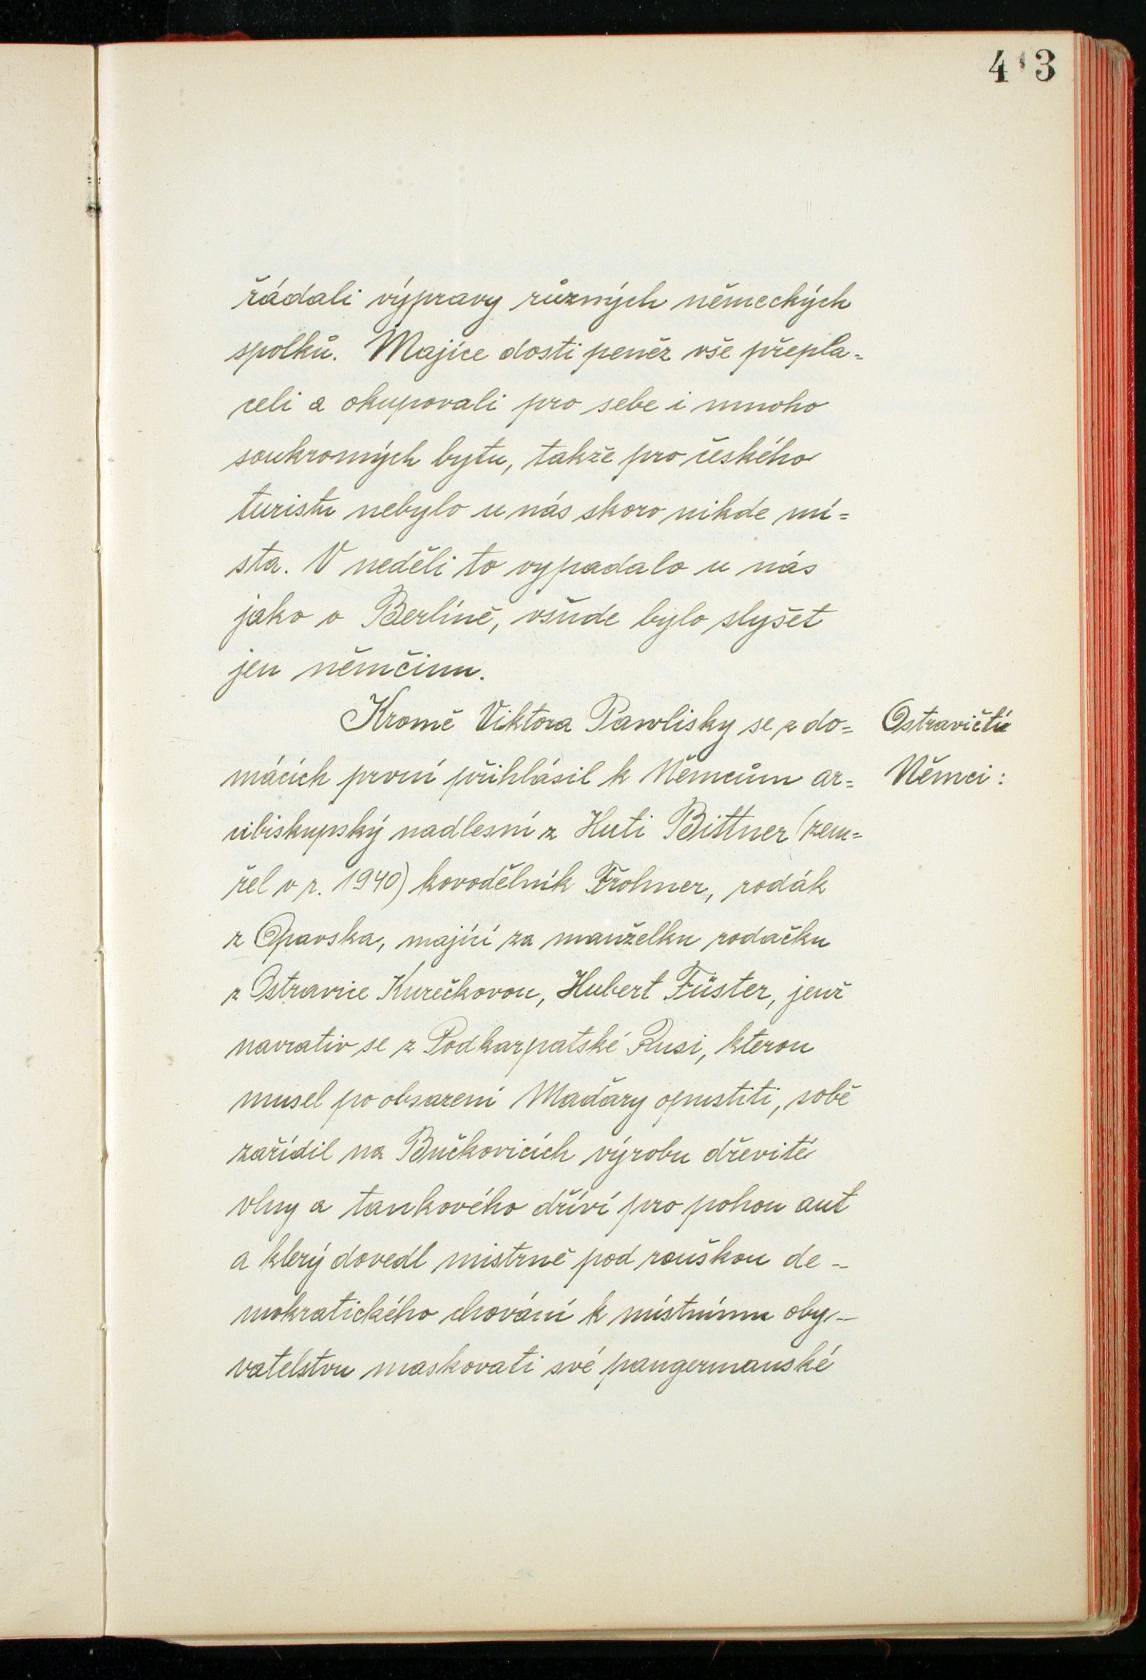 413
řádali výpravy různých německých
spolků. Majíce dosti peněz vše přepla=
celi a okupovali pro sebe i mnoho
soukromých bytu, takže pro českého
turistu nebylo u nás skoro nikde mí=
sta. V neděli to vypadalo u nás
jako v Berlíně, všude bylo slyšet
jen němčinu.
Kromě Viktora Pawlisky se z do=
mácích první přihlásil k Němcům ar=
cibiskupský nadlesní z Huti Bittner (zem=
řel v r. 1940) kovodělník Frohner, rodák
z Opavska, mající za manželku rodačku
z Ostravice Kurečkovou, Hubert Füster, jenž
navrativ se z Podkarpatské Rusi, kterou
musel po obsazení Maďary opustiti, sobě
zařídil na Bučkovicích výrobu dřevité
vlny a tankového dříví pro pohon aut
a který dovedl mistrně pod rouškou de-
mokratického chování k místnímu oby-
vatelstvu maskovati své pangermanské
Ostravičtí
Němci: